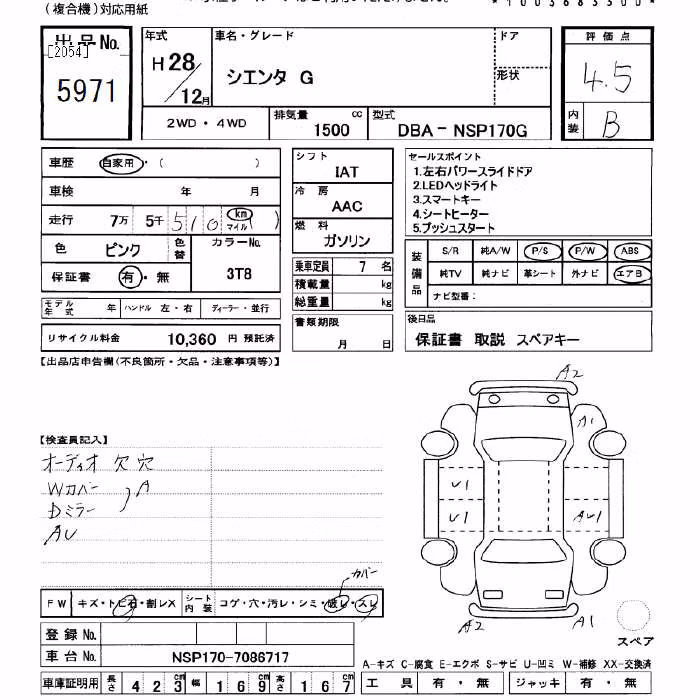 (複合機)対応用紙
*1003683500*
出品No.
[2054]
5971
年式
H28/12月
車名・グレード
シエンタ G
ドア
形状
評価点
4.5
内装
B
2WD・4WD
排気量
1500 cc
型式
DBA-NSP170G
車歴 自家用・( )
車検 年 月
走行 7万 5千 510 km マイル ( )
色 ピンク 色替
カラーNo. 3T8
保証書 有・無
モデル年式 年
ハンドル 左・右
ディーラー・並行
リサイクル料金 10,360 円 預託済
シフト
IAT
冷房
AAC
燃料
ガソリン
乗車定員 7 名
積載量 kg
総重量 kg
書類期限
月 日
セールスポイント
1.左右パワースライドドア
2.LEDヘッドライト
3.スマートキー
4.シートヒーター
5.プッシュスタート
装備品
S/R 純A/W P/S P/W ABS
純TV 純ナビ 革シート 外ナビ エアB
ナビ型番:
後日品
保証書 取説 スペアキー
【出品店申告欄(不良箇所・欠品・注意事項等)】
【検査員記入】
オーディオ 欠 穴
Wカバー
A
Dミラー
AU
カバー
FW キズ・トビ石・割レX
シート内装 コゲ・穴・汚レ・シミ・破レ・スレ
登録No.
車台No. NSP170-7086717
車庫証明用 長さ 423 幅 169 高さ 167
A2
A1
U1
U1
AU1
A2
A1
スペア
A-キズ C-腐食 E-エクボ S-サビ U-凹ミ W-補修 XX-交換済
工具 有・無 ジャッキ 有・無